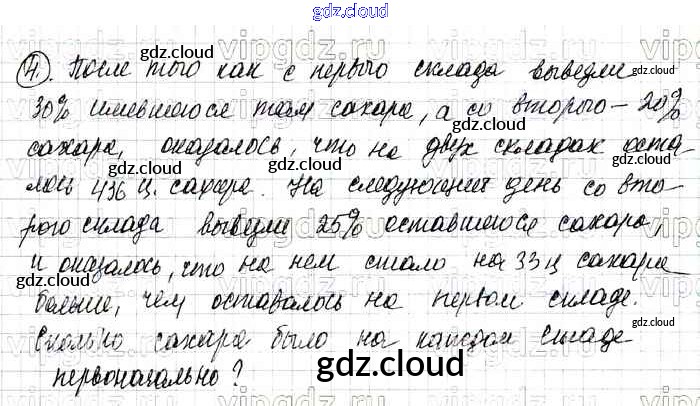 gdz.cloud
4. После того как с первого склада вывезли
30% имевшегося там сахара, а со второго – 20%
сахара, оказалось, что на двух складах оста-
лось 436 ц. сахара. На следующий день со вто-
рого склада вывезли 25% оставшегося сахара
и оказалось, что на нем стало на 33 ц сахара
больше, чем оставалось на первом складе.
Сколько сахара было на каждом складе
первоначально?
gdz.cloud